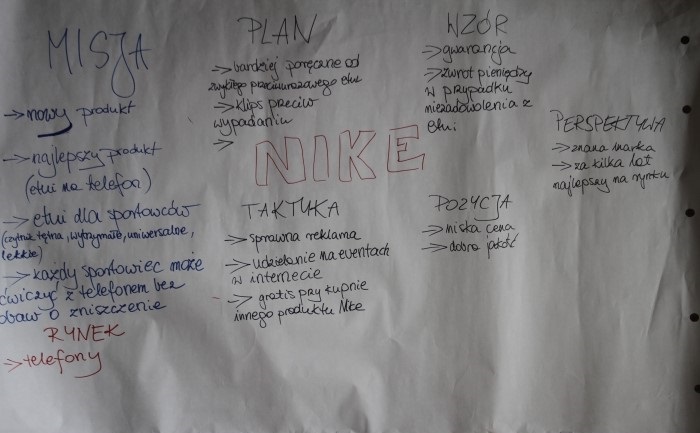 MISJA
→ nowy produkt
→ najlepszy produkt
(etui na telefon)
→ etui dla sportowców
(czytnik tętna, wytrzymałe, uniwersalne,
lekkie)
→ każdy sportowiec może
ćwiczyć z telefonem bez
obaw o zniszczenie
RYNEK
→ telefony
PLAN
→ bardziej poręczne od
zwykłego przeciwurazowego etui
→ klips przeciw
wypadaniu
→
NIKE
TAKTYKA
→ sprawna reklama
→ udzielanie na eventach
w internecie
→ gratis przy kupnie
innego produktu Nike
WZÓR
→ gwarancja
→ zwrot pieniędzy
w przypadku
niezadowolenia z
etui
POZYCJA
→ niska cena
→ dobra jakość
PERSPEKTYWA
→ znana marka
→ za kilka lat
najlepszy na rynku